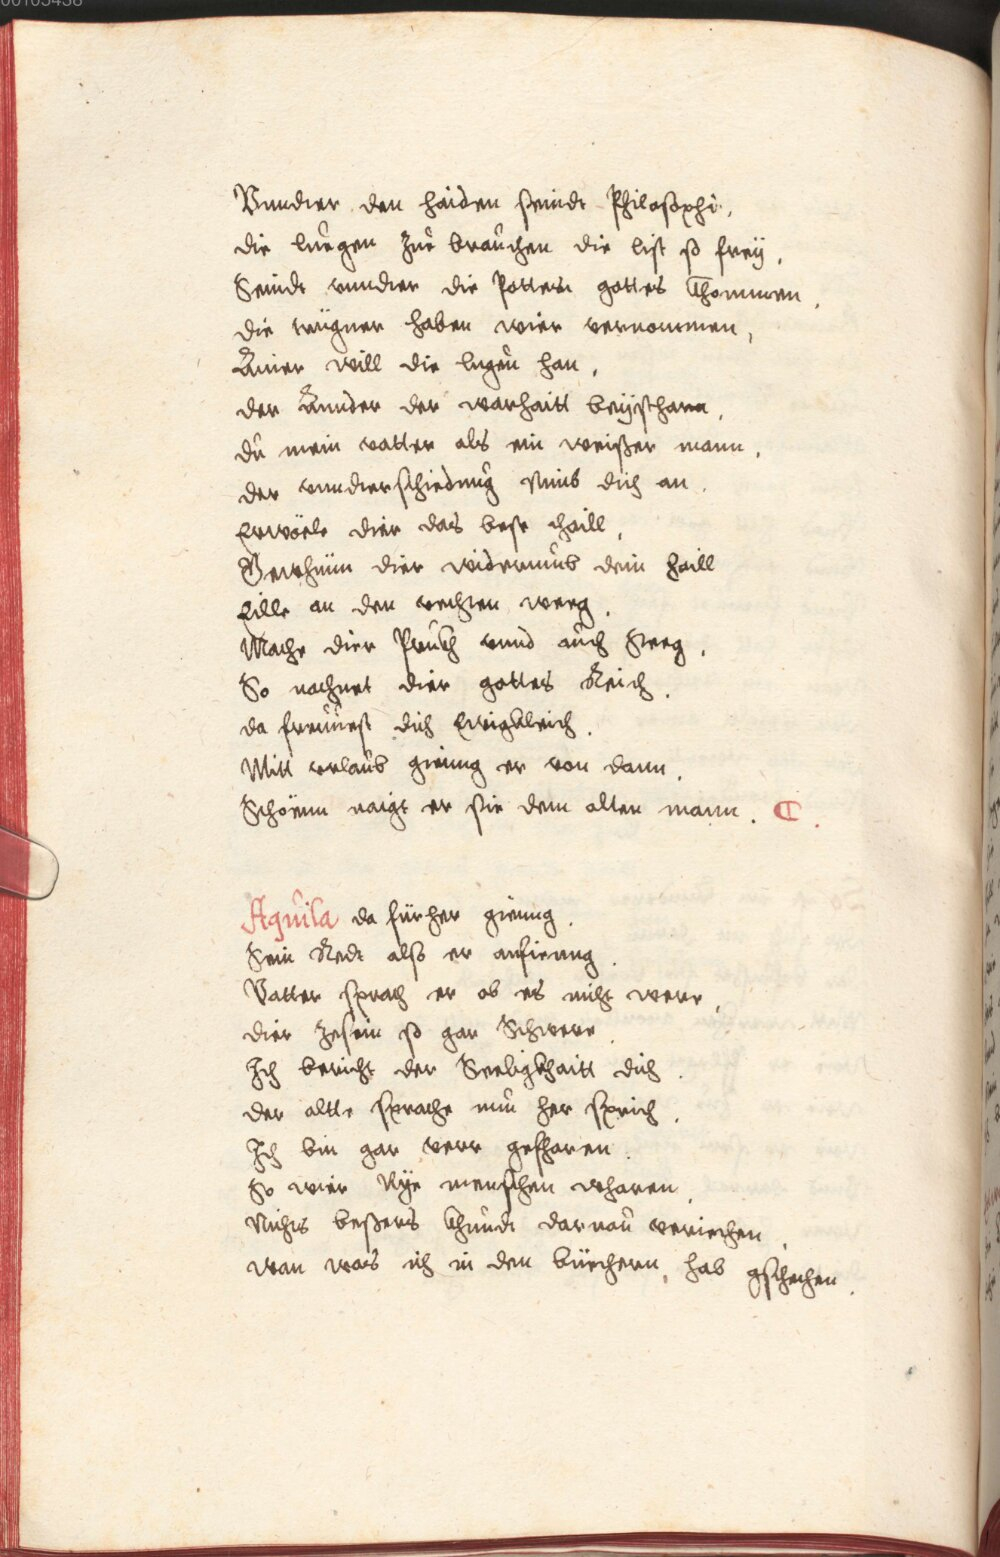 00105458
Vnndter den haiden seindt Philosophi,
die luegen Zue brauchen die list so freÿ,
Seindt vnndter die Potten gottes khommen,
die trügner haben wier vernommen,
Ainer will die lugen han,
der Annder der warhaitt beÿschann,
du mein vatter als ein weißer mann,
der vnndterschiedung Nimb dich an,
Erwöele dier das beste thaill,
Gewhinn dier widerumb dein haill
Eille an den rechten weeg,
Mache dier Prukh vnnd auch Steeg,
So nachnet dier gottes Reich,
da freuuest dich Ewigkleich,
Mitt vrlaub gieng er von dann,
Schöenn naigt er sie dem alten mann. C.
Aquila da fürher gieng,
Sein Redt also er anfienng,
Vatter sprach er ob es nicht were,
dier Zesein so gar Schwere,
Ich bericht der Seeligkhaitt dich,
der altte sprache nun her sprich,
Ich bin gar verr gefharen,
So wier Nÿe menschen wharen,
Nichts beßers khundt daruon veriechen,
wan was ich in den büechern hab gschechen,